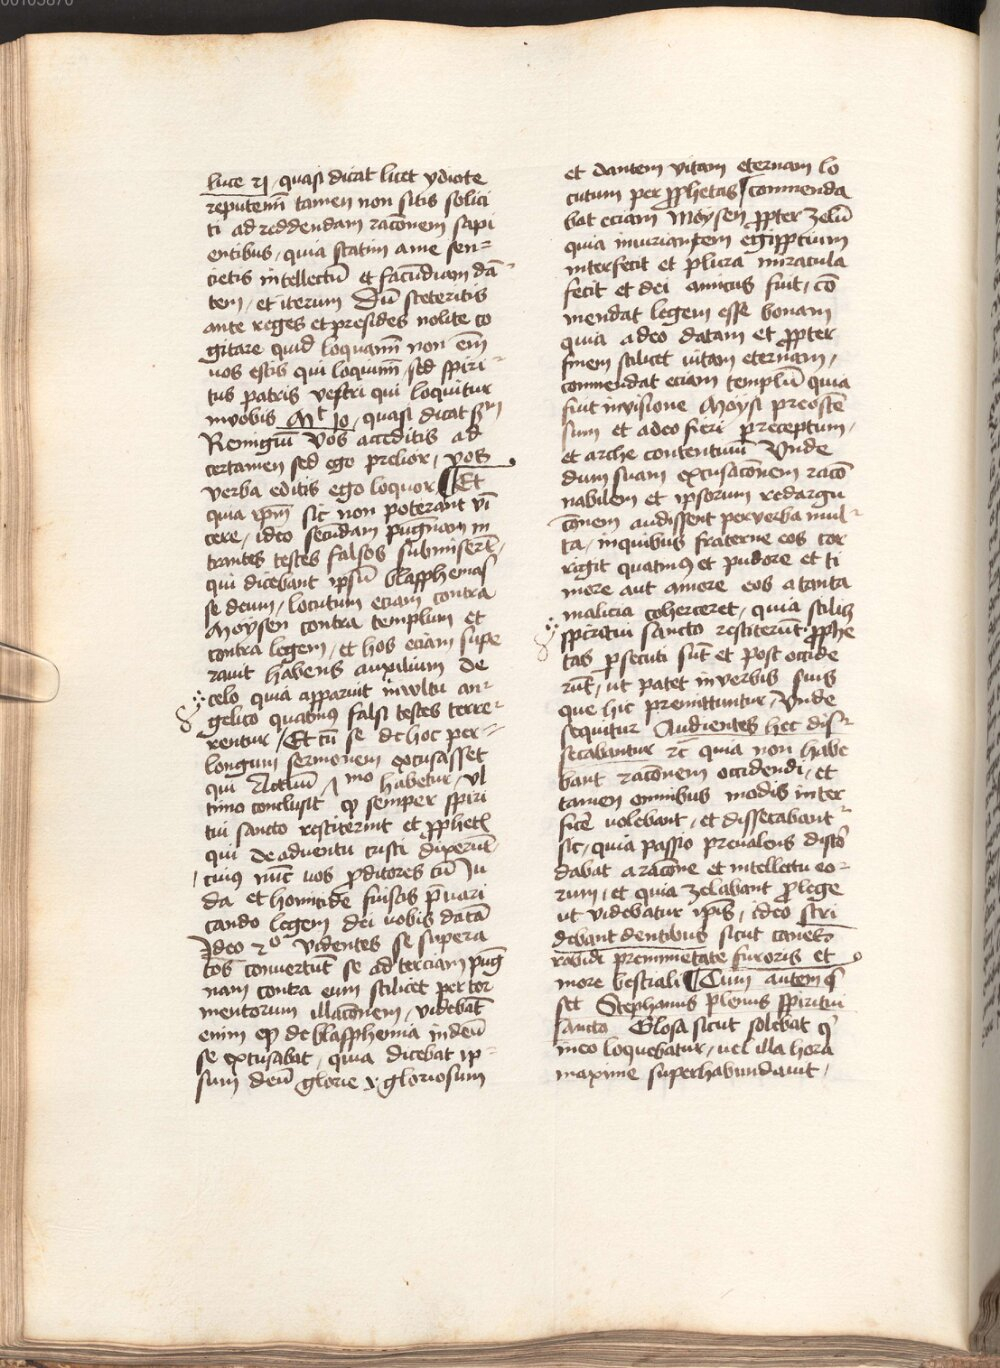 luce 21 / quasi dicat licet ydiote
reputemī tamen non sitis solici
ti ad reddendam racōnem sapi
entibus / quia statim a me sen=
cietis intellectū et facundiam dā
tem / et iterum Dū steteritis
ante reges et presides nolite co
gitare quid loquamī non em̄
uos estis qui loquimī / sed spiri
tus patris vestri qui loquitur
in vobis Mt 10 / quasi dicat sm
Remigiū Vos acceditis ad
certamen sed ego prelior / vos
verba editis ego loquor ¶ Et
quia ipm̄ sic non poterant vī
cere / ideo secūdam pugnam in
trantes testes falsos submiserūt /
qui dicebant ipsū blasphemas
se deum / locutum eciam contra
Moysen contra templum et
contra legem / et hos eciam supe
rauit habens auxilium de
celo quia apparuit in vultu an
gelico quatinus falsi testes terre
rentur / Et cū se de hoc per=
longum sermonem excusasset
qui Actuū mo habetur / vl
timo conclusit qꝫ semper spiri
tui sancto restiterint et ꝓphetis
qui de aduentu cristi dixerūt
/ cuius nūc uos ꝓditores cū Ju
da et homicide fuistis p̄uari
cando legem dei uobis datā
Ideo 2o Videntes se supera
tos conuertūt se ad terciam pug
nam contra eum scilicet per tor
mentorum illacōnem / videbāt
enim qꝫ de blasphemia in deū
se excusabat / quia dicebat ip=
sum deū glorie et gloriosum
et dantem vitam eternam lo
cutum per ꝓphetas / commenda
bat eciam Moysen ꝓpter zelū
quia iniuriantem egipptium
interfecit et plura miracula
fecit et dei amicus fuit / cō
mendat legem esse bonam
quia a deo datam et ꝓpter
finem scilicet vitam eternam /
commendat eciam templū quia
fuit in visione Moysi preostē
sum et a deo fieri preceptum /
et arche contentiuū Vnde
dum suam excusacōnem racō
nabilem et ipsorum redargu
cōnem audissent per verba mul
ta / in quibus fraterne eos cor
rigit quatinus et pudore et ti
more aut amore eos a tanta
malicia coherceret / quia scilicet
spiritui sancto restiterūt ꝓphe
tas persecuti sūt et post occide
rūt / ut patet in verbis suis
que hic premittuntur / Vnde
sequitur Audientes hec dis
secabantur etc quia non habe
bant racōnem occidendi / et
tamen omnibus modis inter
ficere uolebant / et dissecabant
sic / quia passio preualens discō
dabat a racōne et intellectu eo
rum / et quia zelabant pro lege
ut videbatur ipsis / ideo stri
debant dentibus sicut canes
rabidi pre immietate furoris et
more bestiali ¶ Cum autem es
set Stephanus plenus spiritui
sancto Glosa sicut solebat qui
in eo loquebatur / uel illa hora
maxime superhabundauit /